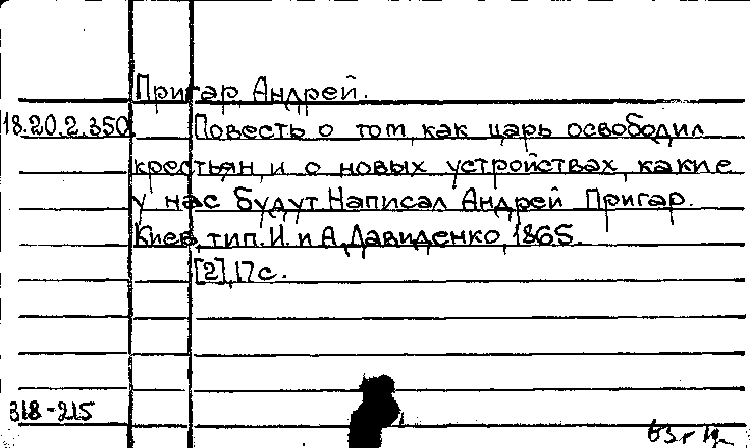 Пригар, Андрей.
18.20.2.350. Повесть о том, как царь освободил
крестьян, и о новых устройствах, какие
у нас будут. Написал Андрей Пригар.
Киев, тип. И. и А. Давиденко, 1865.
[2], 17 с.
318-215